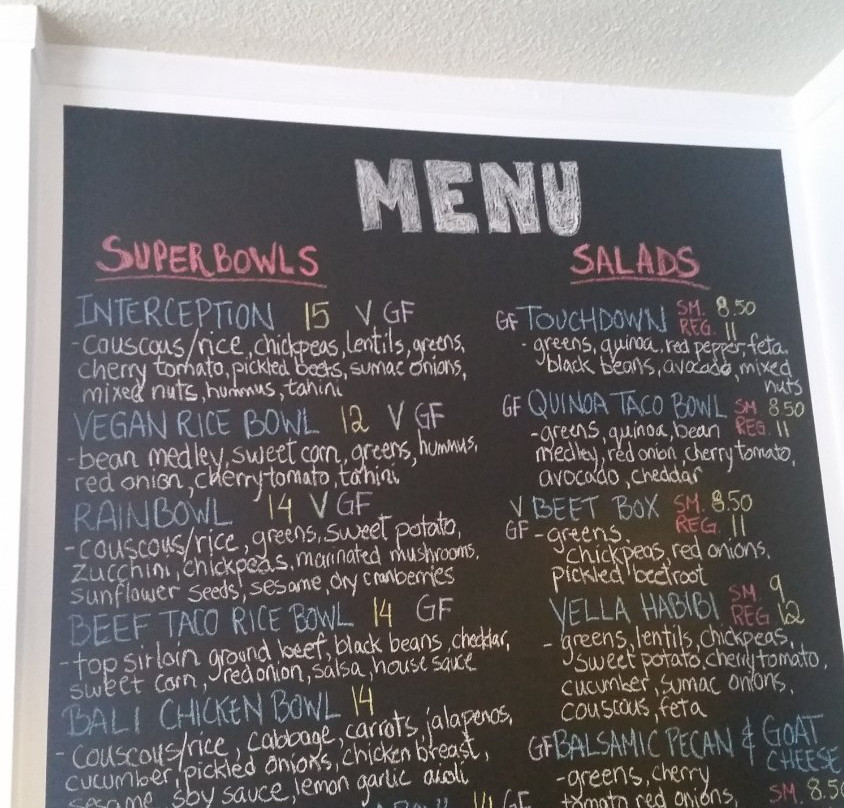 MENU
SUPERBOWLS
INTERCEPTION 15 V GF
-couscous/rice, chickpeas, lentils, greens,
cherry tomato, pickled beets, sumac onions,
mixed nuts, hummus, tahini
VEGAN RICE BOWL 12 V GF
-bean medley, sweet corn, greens, hummus,
red onion, cherry tomato, tahini
RAINBOWL 14 V GF
-couscous/rice, greens, sweet potato,
zucchini, chickpeas, marinated mushrooms,
sunflower seeds, sesame, dry cranberries
BEEF TACO RICE BOWL 14 GF
-top sirloin ground beef, black beans, cheddar,
sweet corn, red onion, salsa, house sauce
BALI CHICKEN BOWL 14
-couscous/rice, cabbage, carrots, jalapenos,
cucumber, pickled onions, chicken breast,
sesame, soy sauce, lemon garlic aioli
14 GF
SALADS
GF TOUCHDOWN SM. 8.50
REG. 11
-greens, quinoa, red pepper, feta,
black beans, avocado, mixed
nuts
GF QUINOA TACO BOWL SM 8.50
REG. 11
-greens, quinoa, bean
medley, red onion, cherry tomato,
avocado, cheddar
V BEET BOX SM. 8.50
REG. 11
GF -greens,
chickpeas, red onions,
pickled beetroot
YELLA HABIBI SM. 9
REG 12
- greens, lentils, chickpeas,
sweet potato, cherry tomato,
cucumber, sumac onions,
couscous, feta
GF BALSAMIC PECAN & GOAT
CHEESE
-greens, cherry
tomato, red onions, SM 8.50